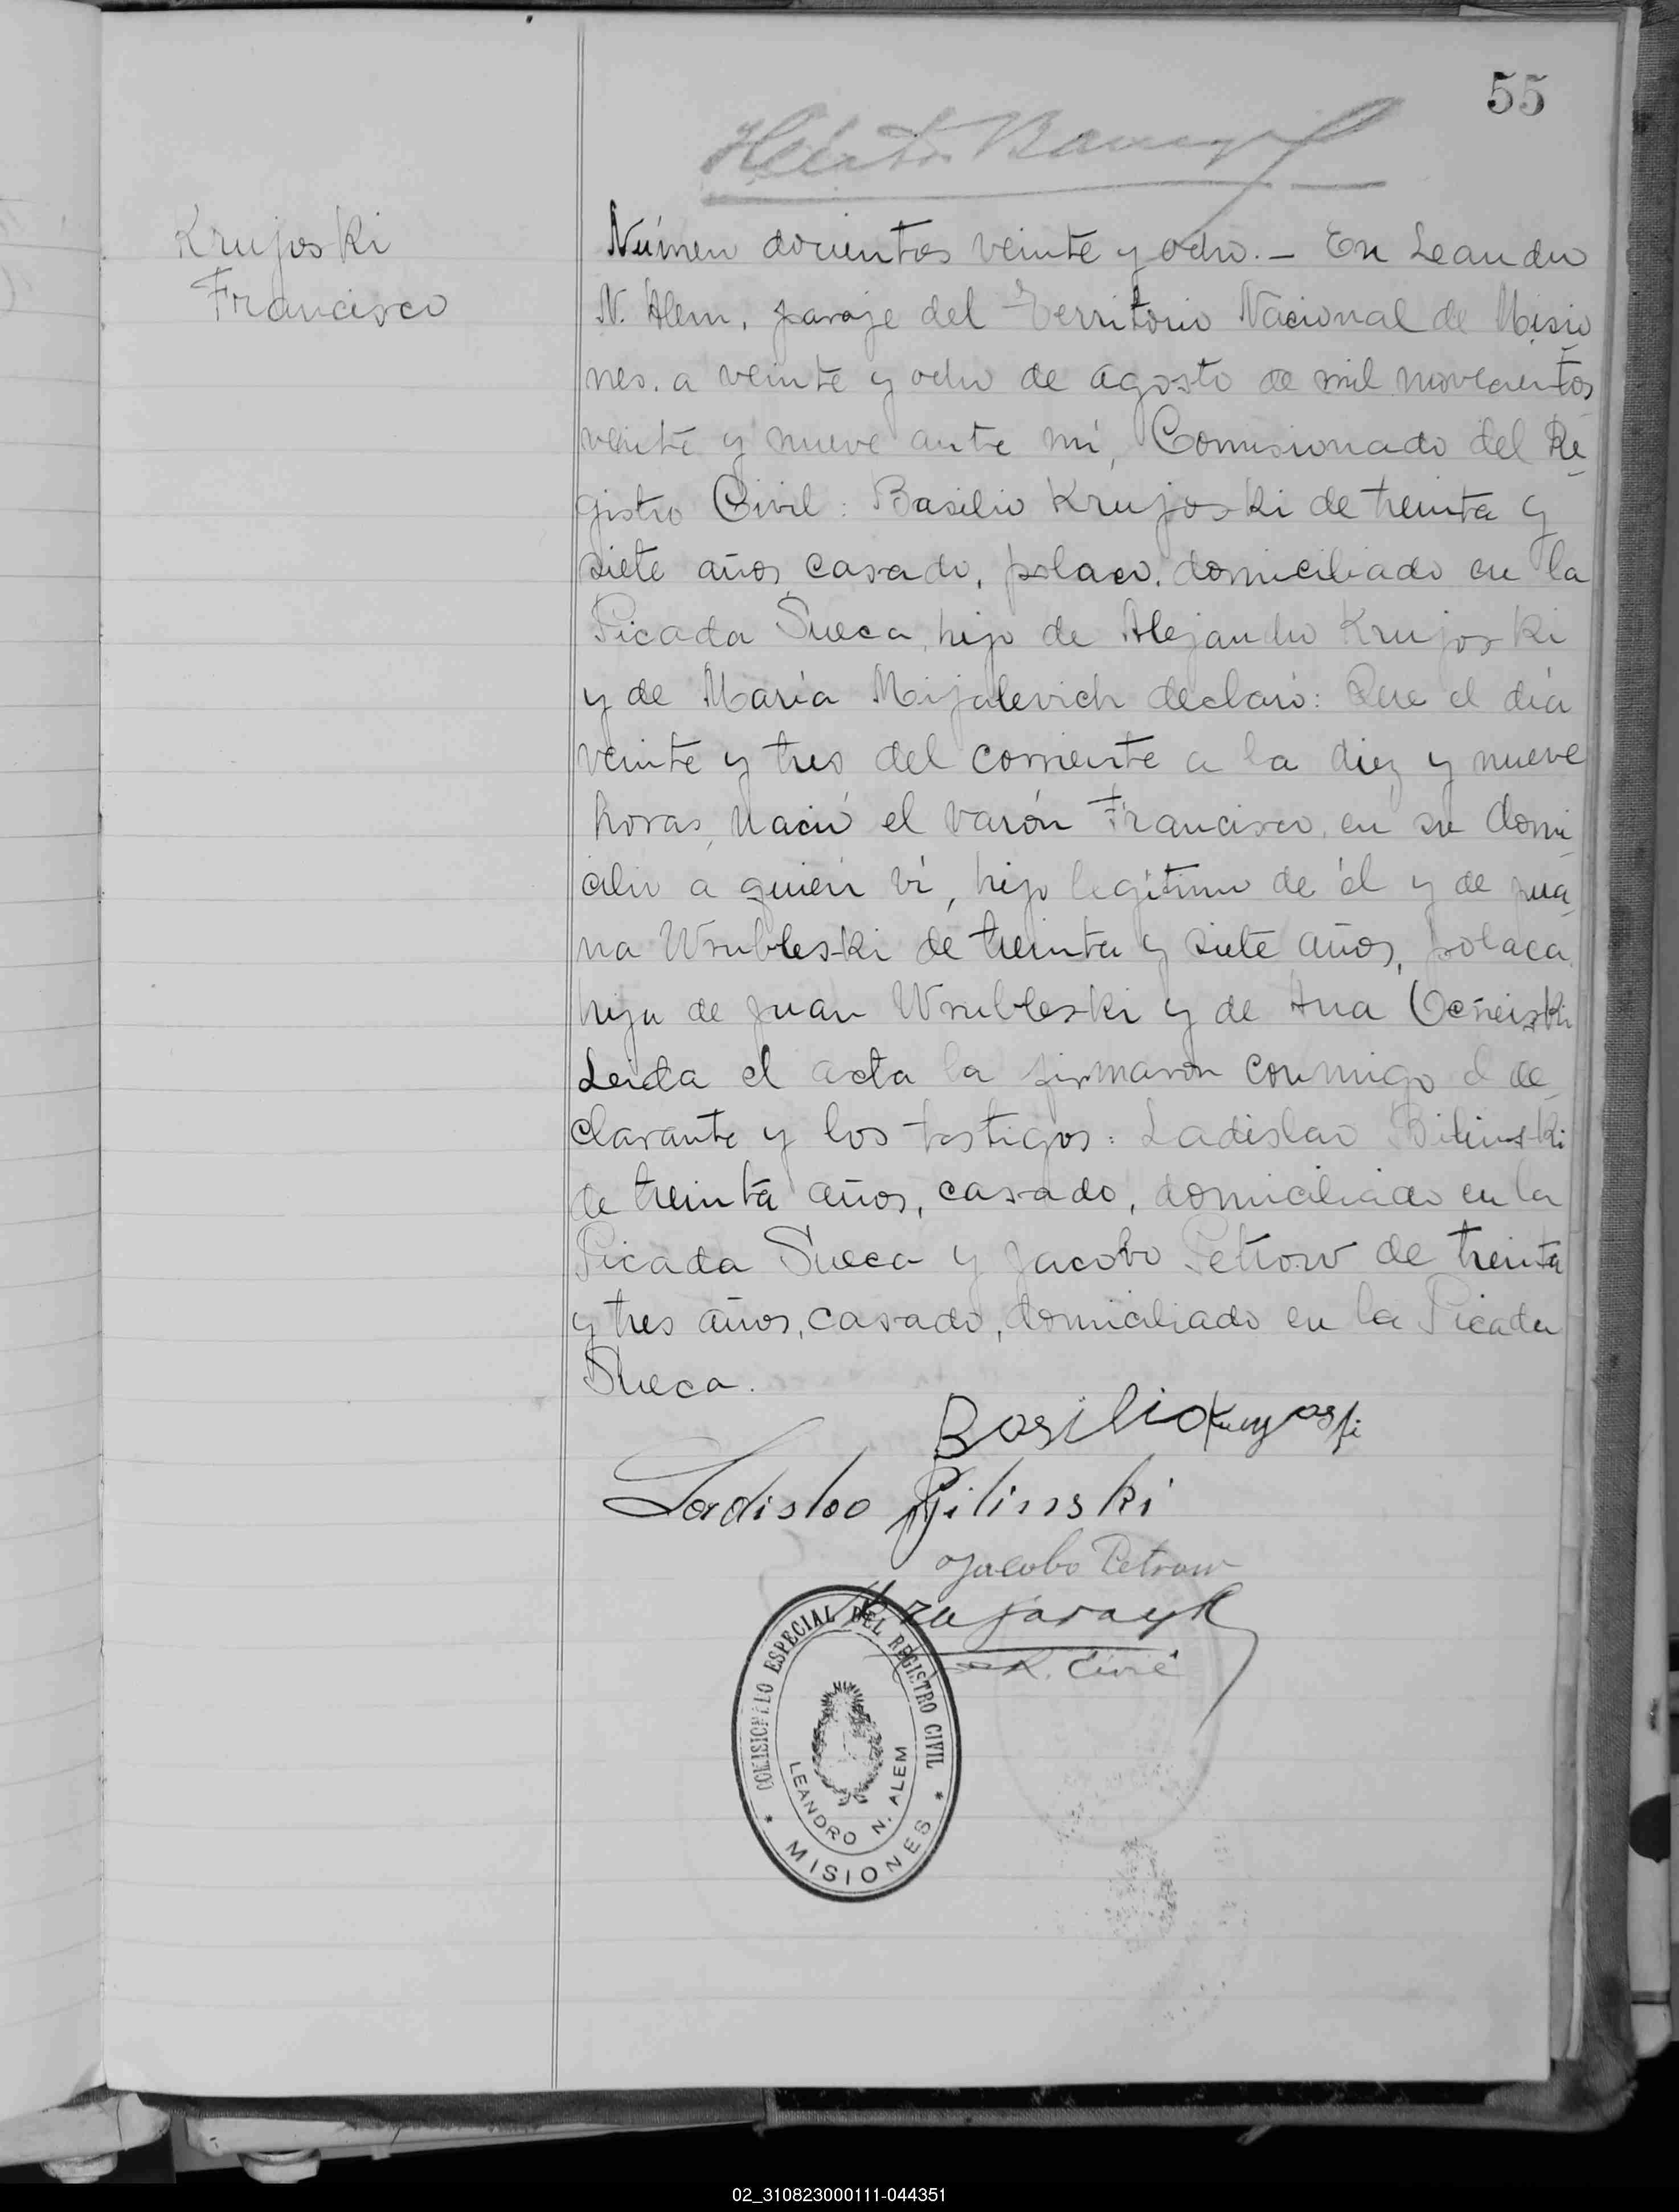 55
Krujoski
Francisco
Número docientos veinte y ocho. — En Leandro
N. Alem, paraje del Territorio Nacional de Misio
nes, a veinte y ocho de agosto de mil novecientos
veinte y nueve ante mí, Comisionado del Re-
gistro Civil: Basilio Krujoski de treinta y
siete años, casado, polaco, domiciliado en la
Picada Sueca, hijo de Alejandro Krujoski
y de María Mijalevich declaró: Que el día
veinte y tres del corriente a la diez y nueve
horas, nació el varón Francisco, en su domi-
cilio a quien ví, hijo legítimo de él y de Jua-
na Wrubleski de treinta y siete años, polaca,
hija de Juan Wrubleski y de Ana
Leida el acta la firmaron conmigo el de-
clarante y los testigos: Ladislao Bilinski
de treinta años, casado, domiciliado en la
Picada Sueca y Jacobo Petrow de treinta
y tres años, casado, domiciliado en la Picada
Sueca.
Basilio
Ladislao Bilinski
Jacobo Petrow
R. Civil
COMISIONADO ESPECIAL DEL REGISTRO CIVIL
LEANDRO N. ALEM
* MISIONES *
02_310823000111-044351